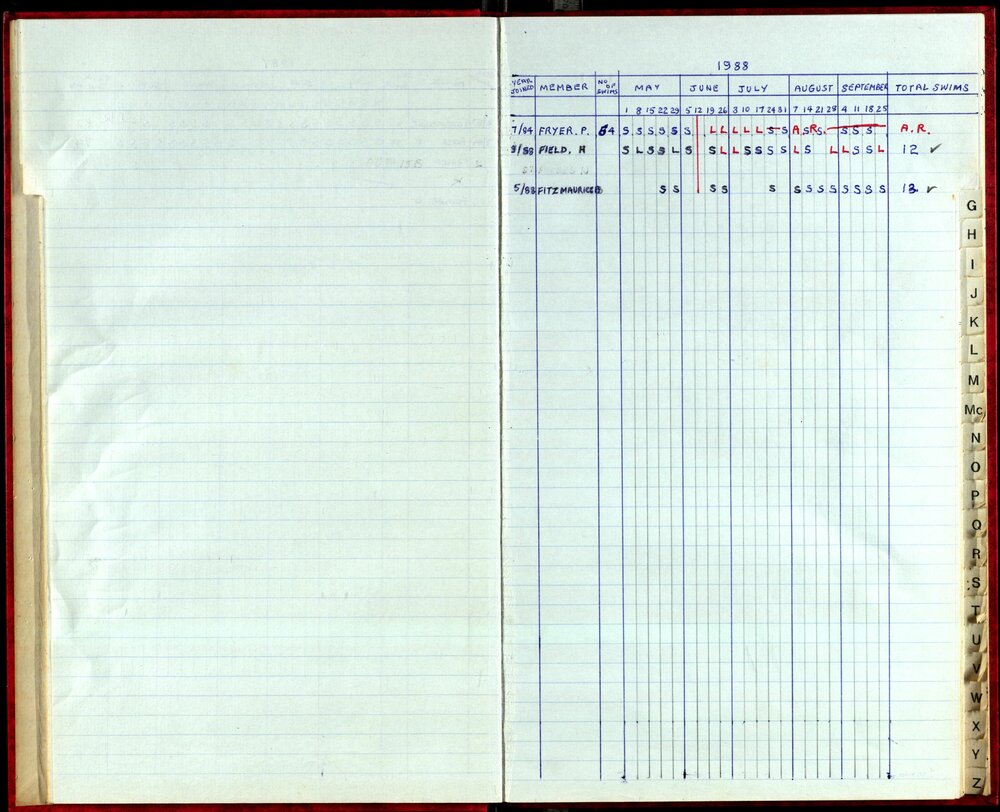 1988
YEAR JOINED MEMBER NO OF SWIMS MAY JUNE JULY AUGUST SEPTEMBER TOTAL SWIMS
1 8 15 22 29 5 12 19 26 3 10 17 24 31 7 14 21 28 4 11 18 25
7/84 FRYER. P. 64 S S S S S S L L L L L S S A S R S S S S A.R.
FIELD, H S L S S L S S L L S S S S L S L L S S L 12 ✓
5/88 FITZMAURICE S S S S S S S S S S S S S 13 ✓
G
H
I
J
K
L
M
Mc
N
O
P
Q
R
S
T
U
V
W
X
Y
Z